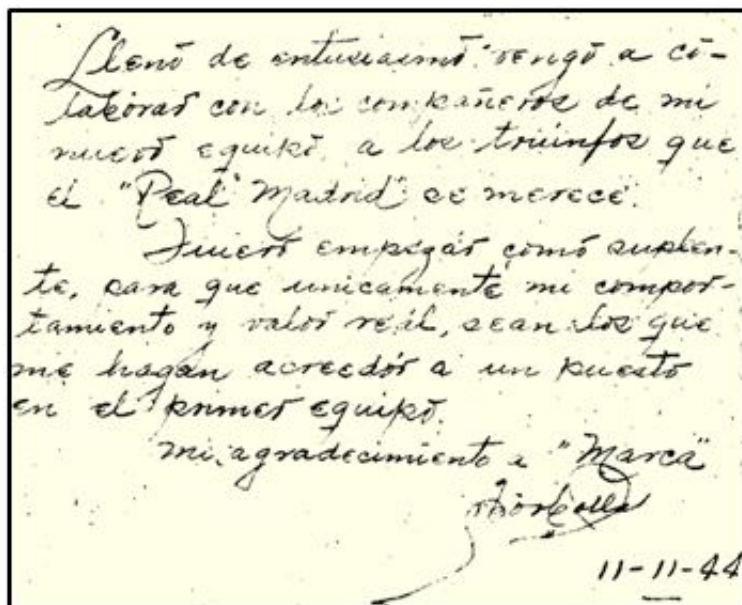 Lleno de entusiasmo vengo a co-
laborar con los compañeros de mi
nuevo equipo a los triunfos que
el "Real Madrid" se merece.
Quiero empezar como suplen-
te, para que unicamente mi compor-
tamiento y valor reál, sean los que
me hagan acreedor a un puesto
en el primer equipo.
Mi agradecimiento a "Marca"
11-11-44